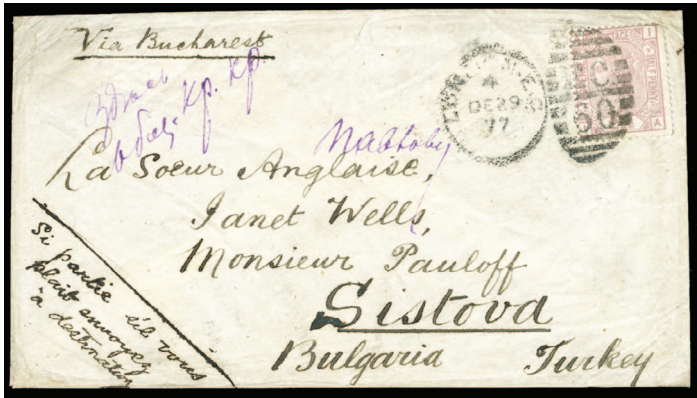 Via Bucharest
LONDON E.C
4
DE 29
77
La Soeur Anglaise,
Janet Wells,
Monsieur Pauloff
Sistova
Bulgaria Turkey
Si partie s'il vous
plait envoyez
à destination